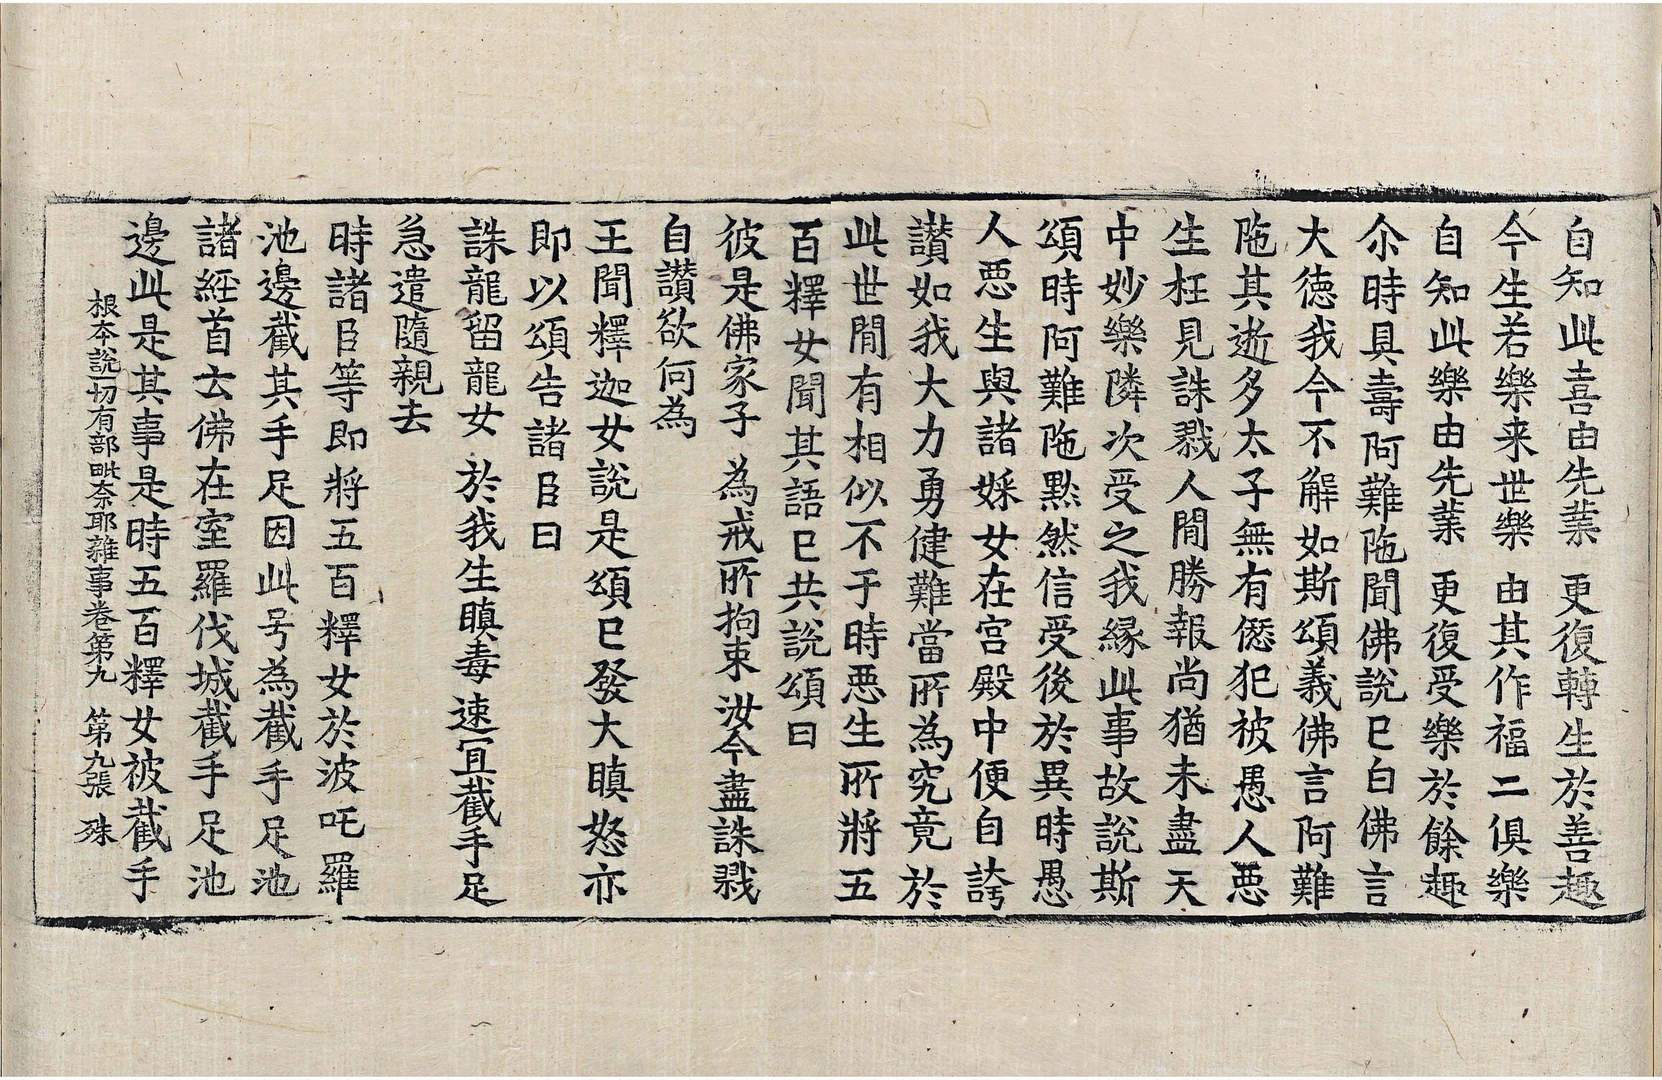 自知此喜由先業　更復轉生於善趣
今生若樂来世樂　由其作福二俱樂
自知此樂由先業　更復受樂於餘趣
尒時具壽阿難陁聞佛說已白佛言
大德我今不解如斯頌義佛言阿難
陁其逝多太子無有㥶犯被愚人惡
生枉見誅戮人間勝報尚猶未盡天
中妙樂隣次受之我緣此事故說斯
頌時阿難陁默然信受後於異時愚
人惡生與諸婇女在宮殿中便自誇
讃如我大力勇健難當所為究竟於
此世間有相似不于時惡生所將五
百釋女聞其語已共說頌曰
彼是佛家子　為戒所拘束　汝今盡誅戮
自讃欲何為
王聞釋迦女說是頌已發大瞋怒亦
即以頌告諸臣曰
誅龍留龍女　於我生瞋毒　速宜截手足
急遣隨親去
時諸臣等即將五百釋女於波吒羅
池邊截其手足因此号為截手足池
諸經首云佛在室羅伐城截手足池
邊此是其事是時五百釋女被截手
根本說一切有部毗奈耶雜事卷第九　第九張　殊